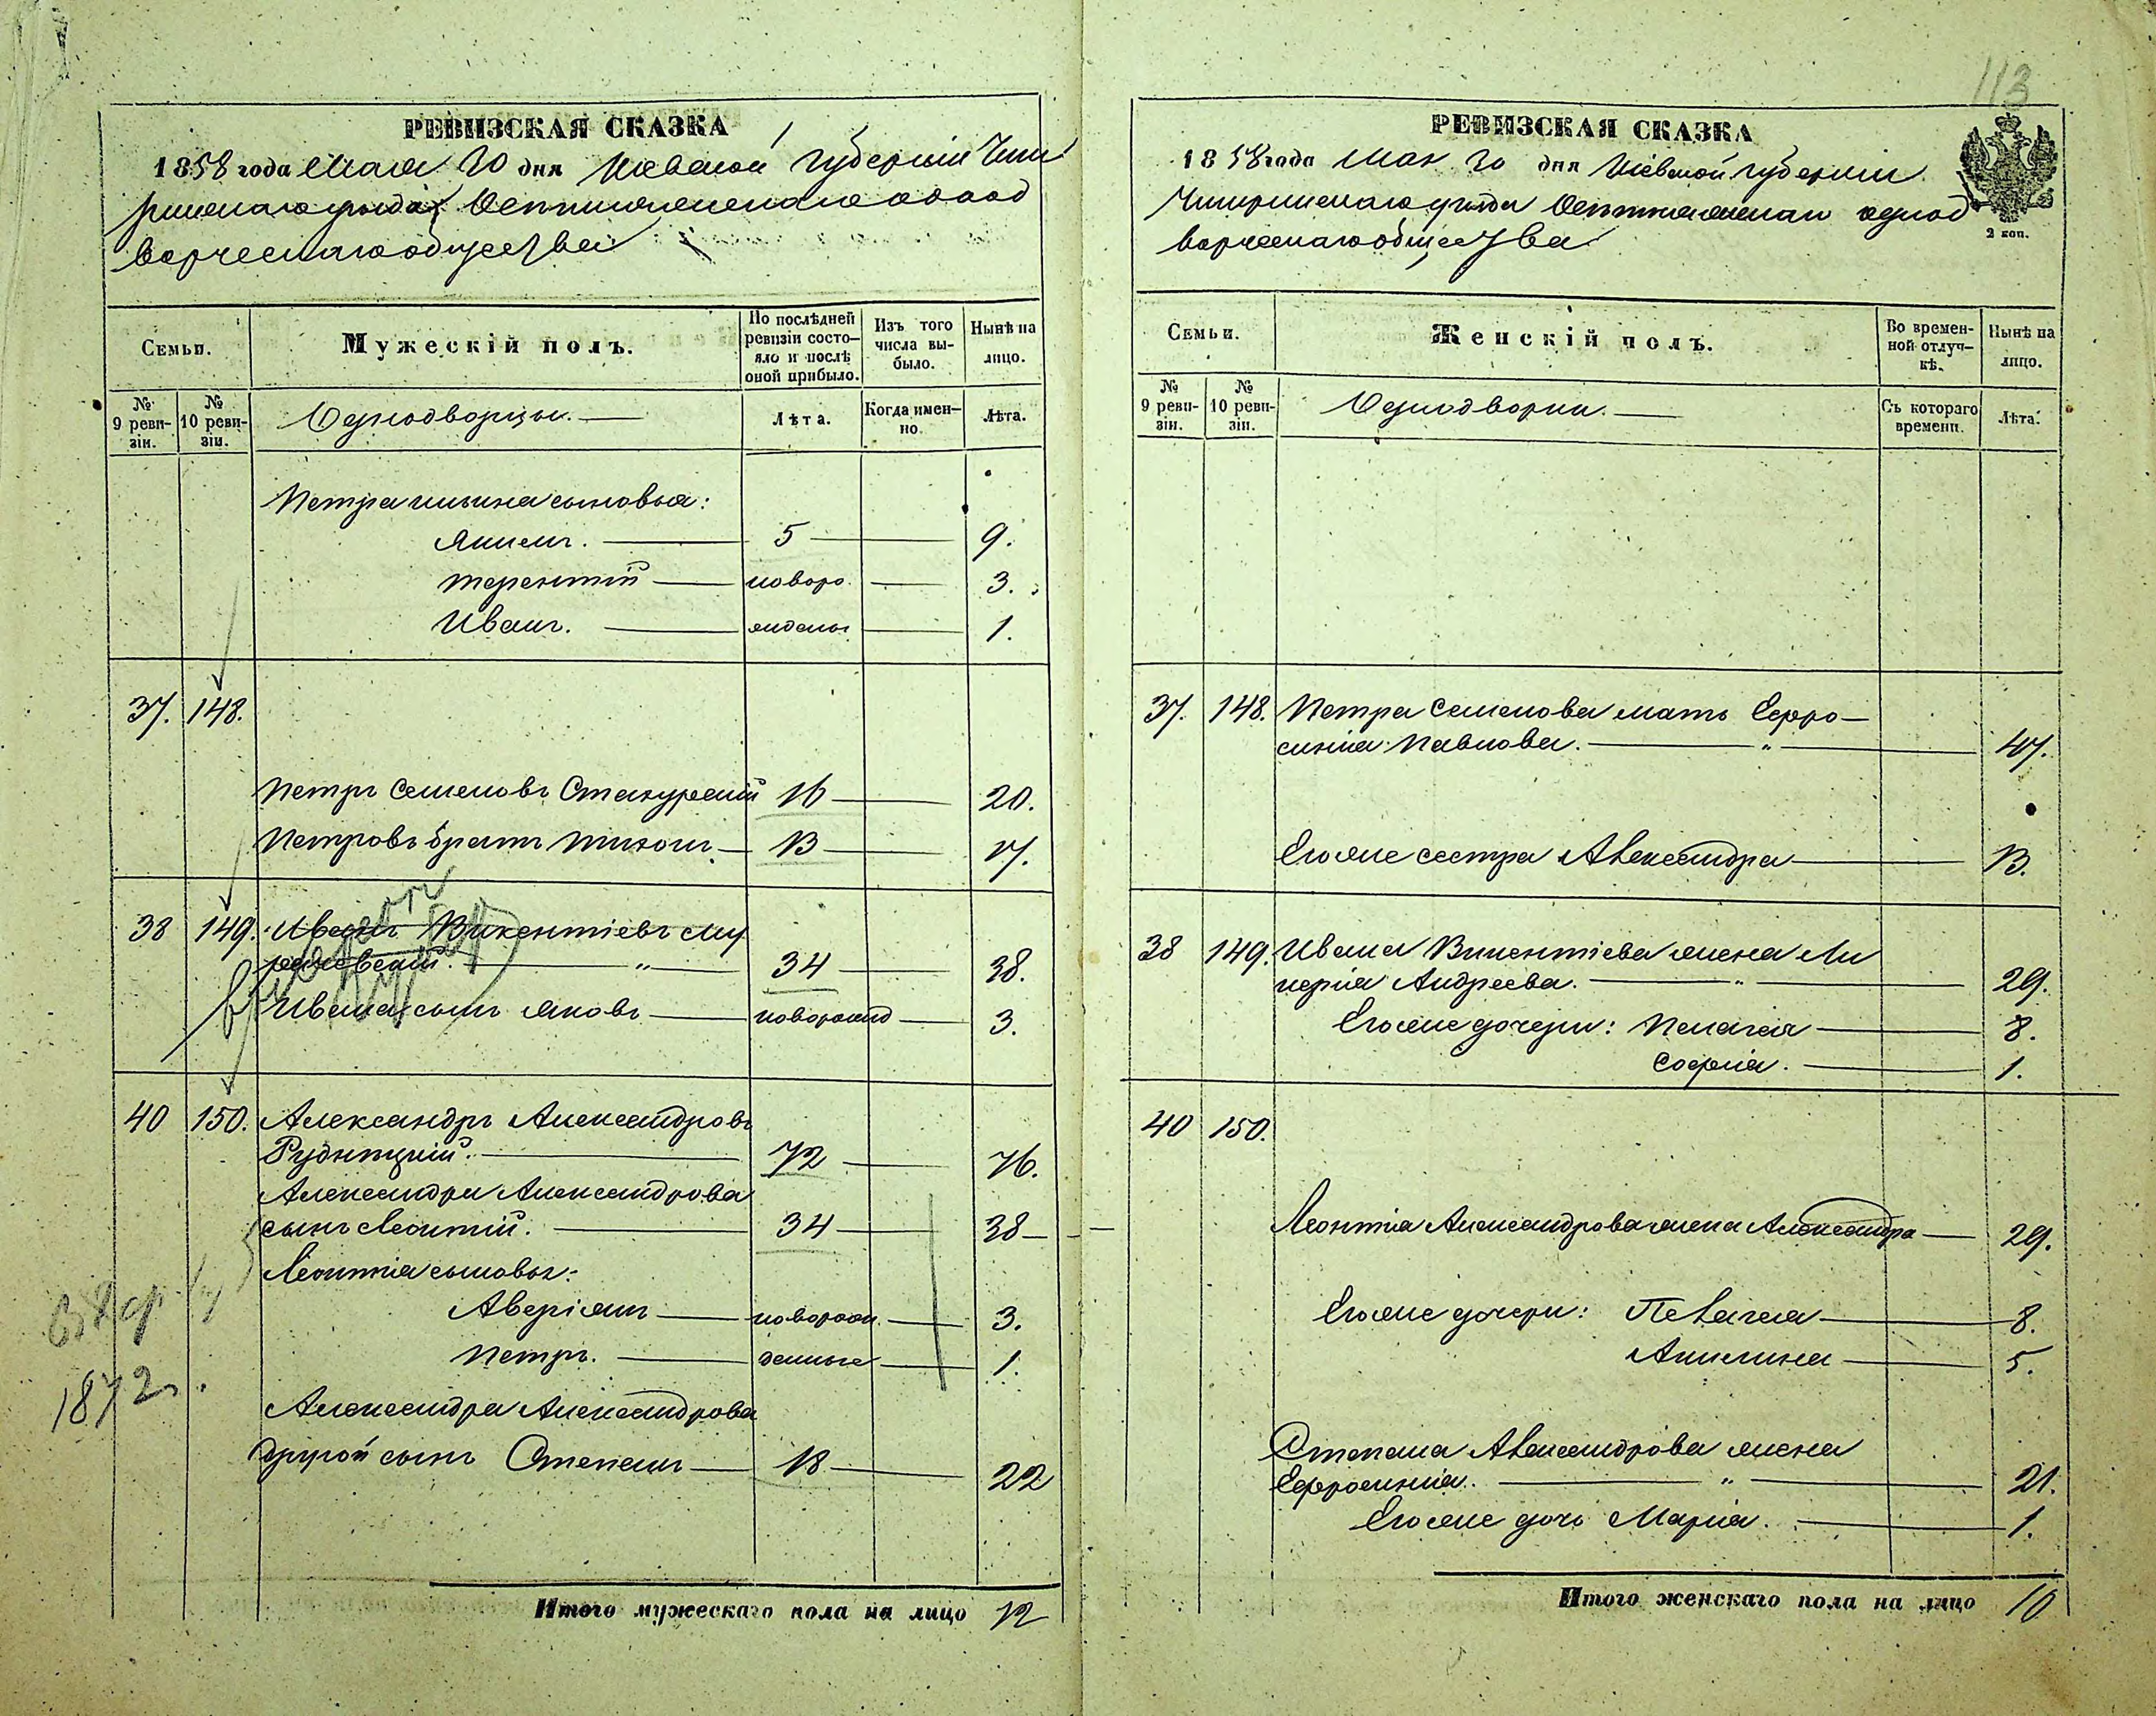 113
РЕВИЗСКАЯ СКАЗКА
1858 года Мая 20 дня Кіевской Губерніи Чиги
ринскаго уѣзда однод
ворческаго общества
Семьи.
Мужескій полъ.
По послѣдней ревизіи состояло и послѣ оной прибыло.
Изъ того числа выбыло.
Нынѣ на лицо.
№ 9 ревизіи.
№ 10 ревизіи.
Однодворцы.
Лѣта.
Когда именно.
Лѣта.
Петра Ильина сыновья:
Якимъ. 5 9.
Терентій новоро 3.
Иванъ. жденые 1.
37. 148.
Петръ Семеновъ Стакурскій 16 20.
Петровъ братъ Тихонъ. 13 17.
38 149. Иванъ Викентіевъ
34 38.
Ивана сынъ Яковъ новорожд 3.
40 150. Александръ Александровъ
Рудницкій. 72 76.
Александра Александрова
сынъ Леонтій. 34 38
Леонтія сыновья:
Аверіянъ новорож 3.
Петръ. денные 1.
Александра Александрова
другой сынъ Степанъ 18 22
1872 г.
Итого мужескаго пола на лицо 12
РЕВИЗСКАЯ СКАЗКА
1858 года Мая 20 дня Кіевской Губерніи
Чигиринскаго уѣзда однод
ворческаго общества
2 коп.
Семьи.
Женскій полъ.
Во временной отлучкѣ.
Нынѣ на лицо.
№ 9 ревизіи.
№ 10 ревизіи.
Однодворки.
Съ котораго времени.
Лѣта.
37. 148. Петра Семенова мать Ефро–
синія Павлова. " 47.
Его же сестра Александра 13.
38 149. Ивана Викентіева жена Ли
керія Андреева. " 29.
Его же дочери: Пелагея 8.
Софія. 1.
40 150.
Леонтія Александрова жена Александра 29.
Его же дочери: Пелагея 8.
Акилина 5.
Степана Александрова жена
Ефросинія. " 21.
Его же дочь Марія. 1.
Итого женскаго пола на лицо 10